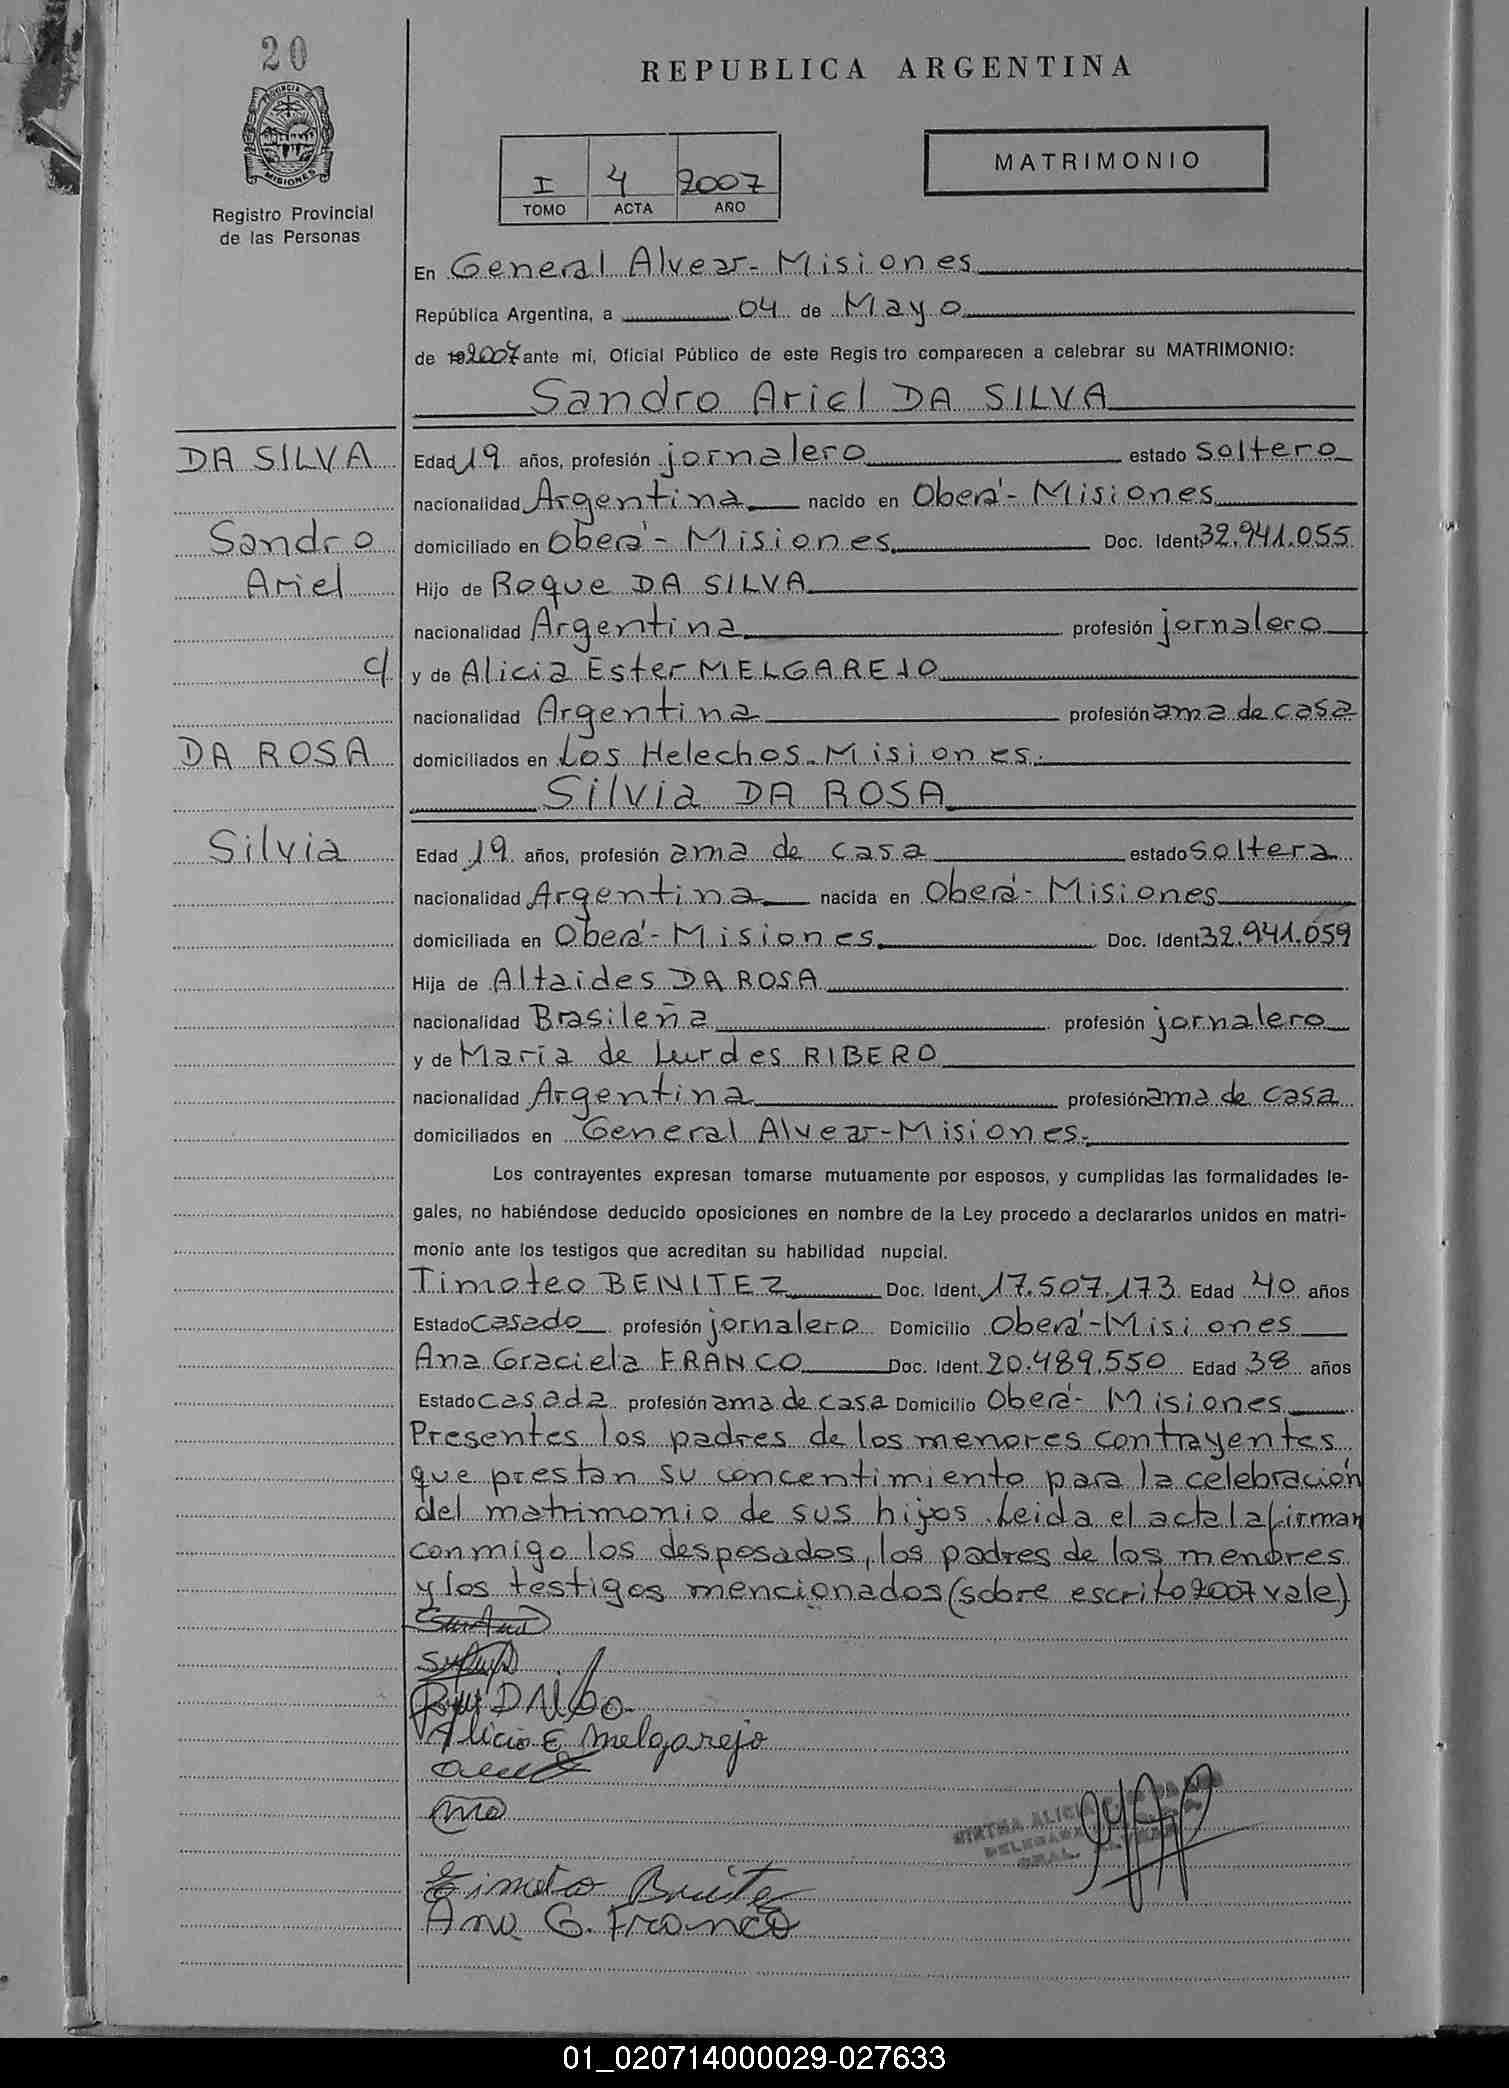 20
PROVINCIA DE
MISIONES
Registro Provincial
de las Personas
REPUBLICA ARGENTINA
I 4 2007
TOMO ACTA AÑO
MATRIMONIO
En General Alvear - Misiones
República Argentina, a 04 de Mayo
de 19 2007 ante mi, Oficial Público de este Regis tro comparecen a celebrar su MATRIMONIO:
Sandro Ariel DA SILVA
DA SILVA
Sandro
Ariel
c/
DA ROSA
Silvia
Edad 19 años, profesión jornalero estado soltero
nacionalidad Argentina nacido en Oberá - Misiones
domiciliado en Oberá - Misiones Doc. Ident. 32.941.055
Hijo de Roque DA SILVA
nacionalidad Argentina profesión jornalero
y de Alicia Ester MELGAREJO
nacionalidad Argentina profesión ama de casa
domiciliados en Los Helechos - Misiones.
Silvia DA ROSA
Edad 19 años, profesión ama de casa estado soltera
nacionalidad Argentina nacida en Oberá - Misiones
domiciliada en Oberá - Misiones Doc. Ident. 32.941.059
Hija de Altaides DA ROSA
nacionalidad Brasileña profesión jornalero
y de María de Lurdes RIBERO
nacionalidad Argentina profesión ama de casa
domiciliados en General Alvear - Misiones.
Los contrayentes expresan tomarse mutuamente por esposos, y cumplidas las formalidades le-
gales, no habiéndose deducido oposiciones en nombre de la Ley procedo a declararlos unidos en matri-
monio ante los testigos que acreditan su habilidad nupcial.
Timoteo BENITEZ Doc. Ident. 17.507.173 Edad 40 años
Estado casado profesión jornalero Domicilio Oberá - Misiones
Ana Graciela FRANCO Doc. Ident. 20.489.550 Edad 38 años
Estado casada profesión ama de casa Domicilio Oberá - Misiones
Presentes los padres de los menores contrayentes
que prestan su concentimiento para la celebración
del matrimonio de sus hijos. Leida el acta la firman
conmigo los desposados, los padres de los menores
y los testigos mencionados (sobre escrito 2007 vale)
Alicia E Melgarejo
MIRTHA ALICIA
DELEGADA
GRAL. ALVEAR
Timoteo Benitez
Ana G. Franco
01_020714000029-027633